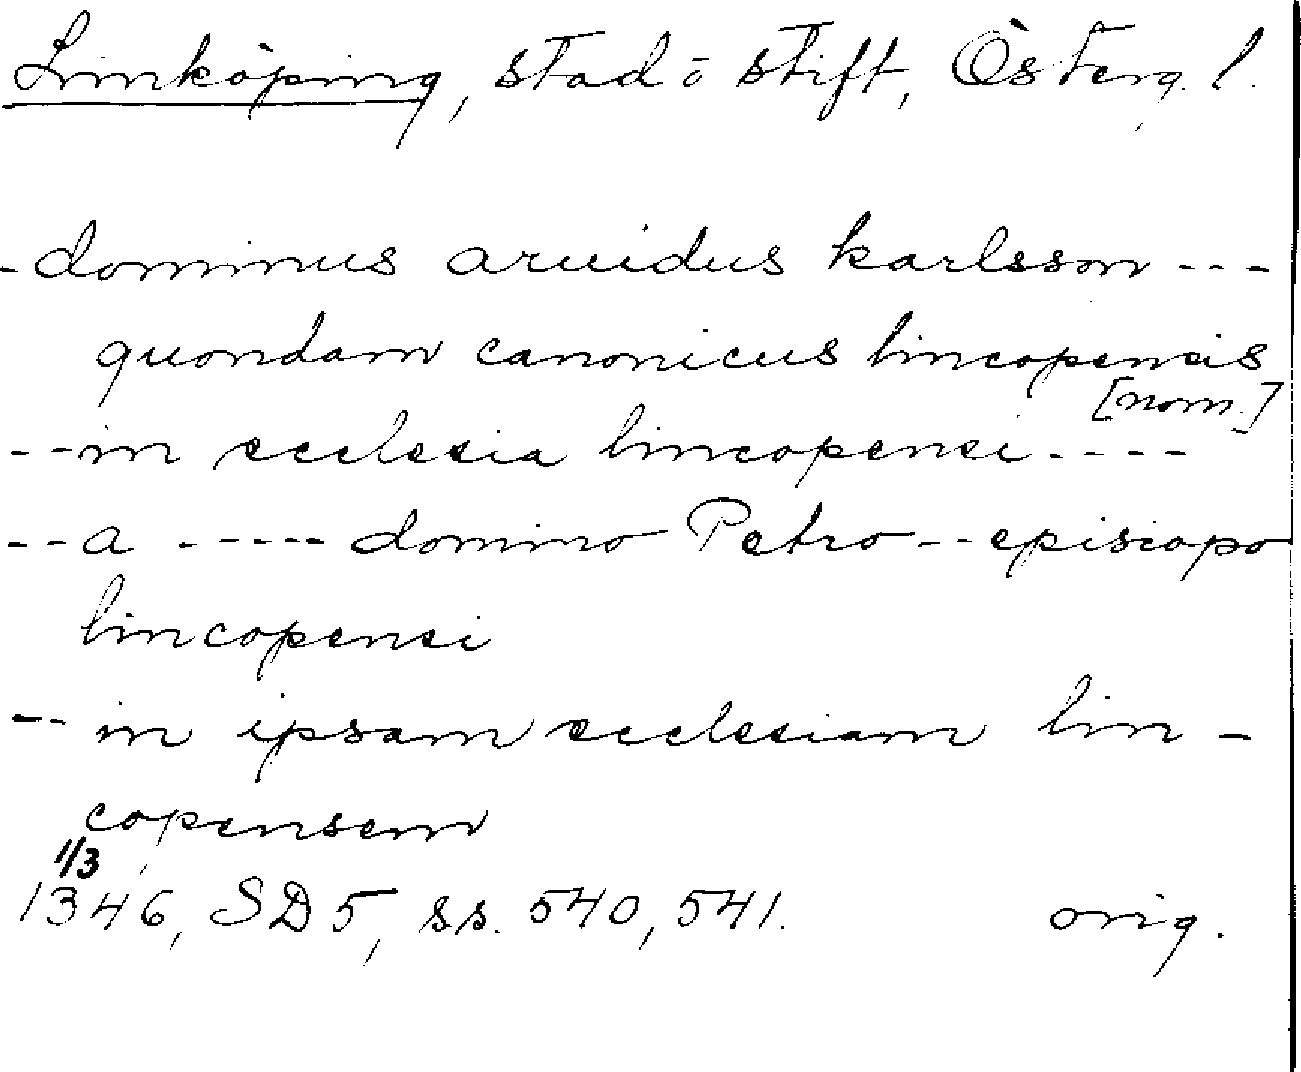 Linköping, stad o stift, Österg. l.
- dominus aruidus karlsson ---
quondam canonicus lincopensis
[nom.]
-- in ecclesia lincopensi ----
-- a ----- domino Petro -- episcopo
lincopensi
-- in ipsam ecclesiam lin-
copensem
1/3
1346, SD 5, ss. 540, 541. orig.